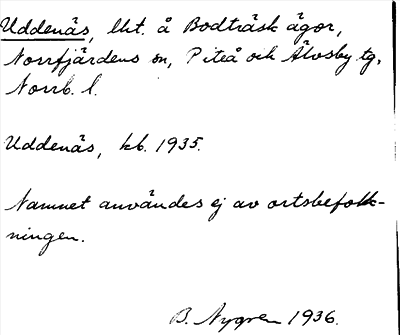 Uddenäs, lht. å Bodträsk ägor,
Norrfjärdens sn, Piteå och Älvsby tg,
Norrb. l.
Uddenäs, kb. 1935.
Namnet användes ej av ortsbefolk-
ningen.
B. Nygren 1936.